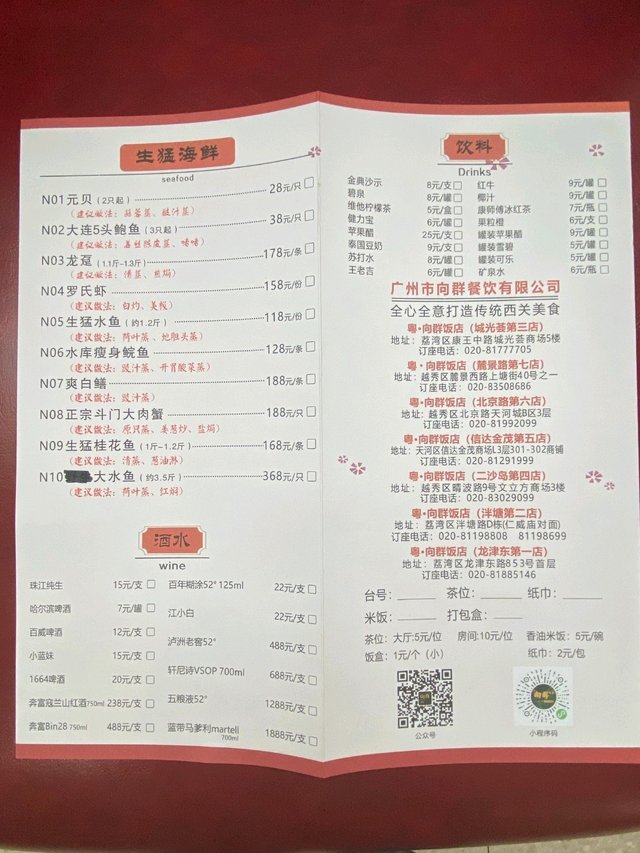 生猛海鲜
seafood
N01元贝(2只起) 28元/只
(建议做法:蒜蓉蒸、豉汁蒸)
N02大连5头鲍鱼(3只起) 38元/只
(建议做法:姜丝陈皮蒸、啫啫)
N03龙趸(1.1斤-1.3斤) 178元/条
(建议做法:清蒸、煎焗)
N04罗氏虾 158元/份
(建议做法:白灼、美极)
N05生猛水鱼(约1.2斤) 118元/份
(建议做法:荷叶蒸、地胆头蒸)
N06水库瘦身鲩鱼 128元/条
(建议做法:豉汁蒸、开胃酸菜蒸)
N07爽白鳝 188元/条
(建议做法:豉汁蒸)
N08正宗斗门大肉蟹 188元/只
(建议做法:原只蒸、姜葱炒、盐焗)
N09生猛桂花鱼(1斤-1.2斤) 168元/条
(建议做法:清蒸、葱油淋)
N10 大水鱼(约3.5斤) 368元/只
(建议做法:荷叶蒸、红焖)
酒水
wine
珠江纯生 15元/支
哈尔滨啤酒 7元/罐
百威啤酒 12元/支
小蓝妹 15元/支
1664啤酒 20元/支
奔富寇兰山红酒750ml 238元/支
奔富Bin28 750ml 488元/支
百年糊涂52° 125ml 22元/支
江小白 22元/支
泸州老窖52° 488元/支
轩尼诗VSOP 700ml 688元/支
五粮液52° 1288元/支
蓝带马爹利martell 700ml 1888元/支
饮料
Drinks
金典沙示 8元/支
碧泉 8元/罐
维他柠檬茶 5元/盒
健力宝 6元/罐
苹果醋 25元/支
泰国豆奶 9元/支
苏打水 8元/支
王老吉 6元/罐
红牛 9元/罐
椰汁 9元/罐
康师傅冰红茶 7元/瓶
果粒橙 6元/支
罐装苹果醋 9元/罐
罐装雪碧 5元/罐
罐装可乐 5元/罐
矿泉水 6元/瓶
广州市向群餐饮有限公司
全心全意打造传统西关美食
粤·向群饭店(城光荟第三店)
地址:荔湾区康王中路城光荟商场5楼
订座电话:020-81777705
粤·向群饭店(麓景路第七店)
地址:越秀区麓景西路上塘街40号之一
订座电话:020-83508686
粤·向群饭店(北京路第六店)
地址:越秀区北京路天河城B区3层
订座电话:020-81992099
粤·向群饭店(信达金茂第五店)
地址:天河区信达金茂商场L3层301-302商铺
订座电话:020-81291999
粤·向群饭店(二沙岛第四店)
地址:越秀区晴波路9号文立方商场3楼
订座电话:020-83029099
粤·向群饭店(泮塘第二店)
地址:荔湾区泮塘路D栋(仁威庙对面)
订座电话:020-81198808 81198699
粤·向群饭店(龙津东第一店)
地址:荔湾区龙津东路853号首层
订座电话:020-81885146
台号:______ 茶位:______ 纸巾:______
米饭:______ 打包盒:______
茶位:大厅:5元/位 房间:10元/位 香油米饭:5元/碗
饭盒:1元/个(小) 纸巾:2元/包
公众号
小程序码